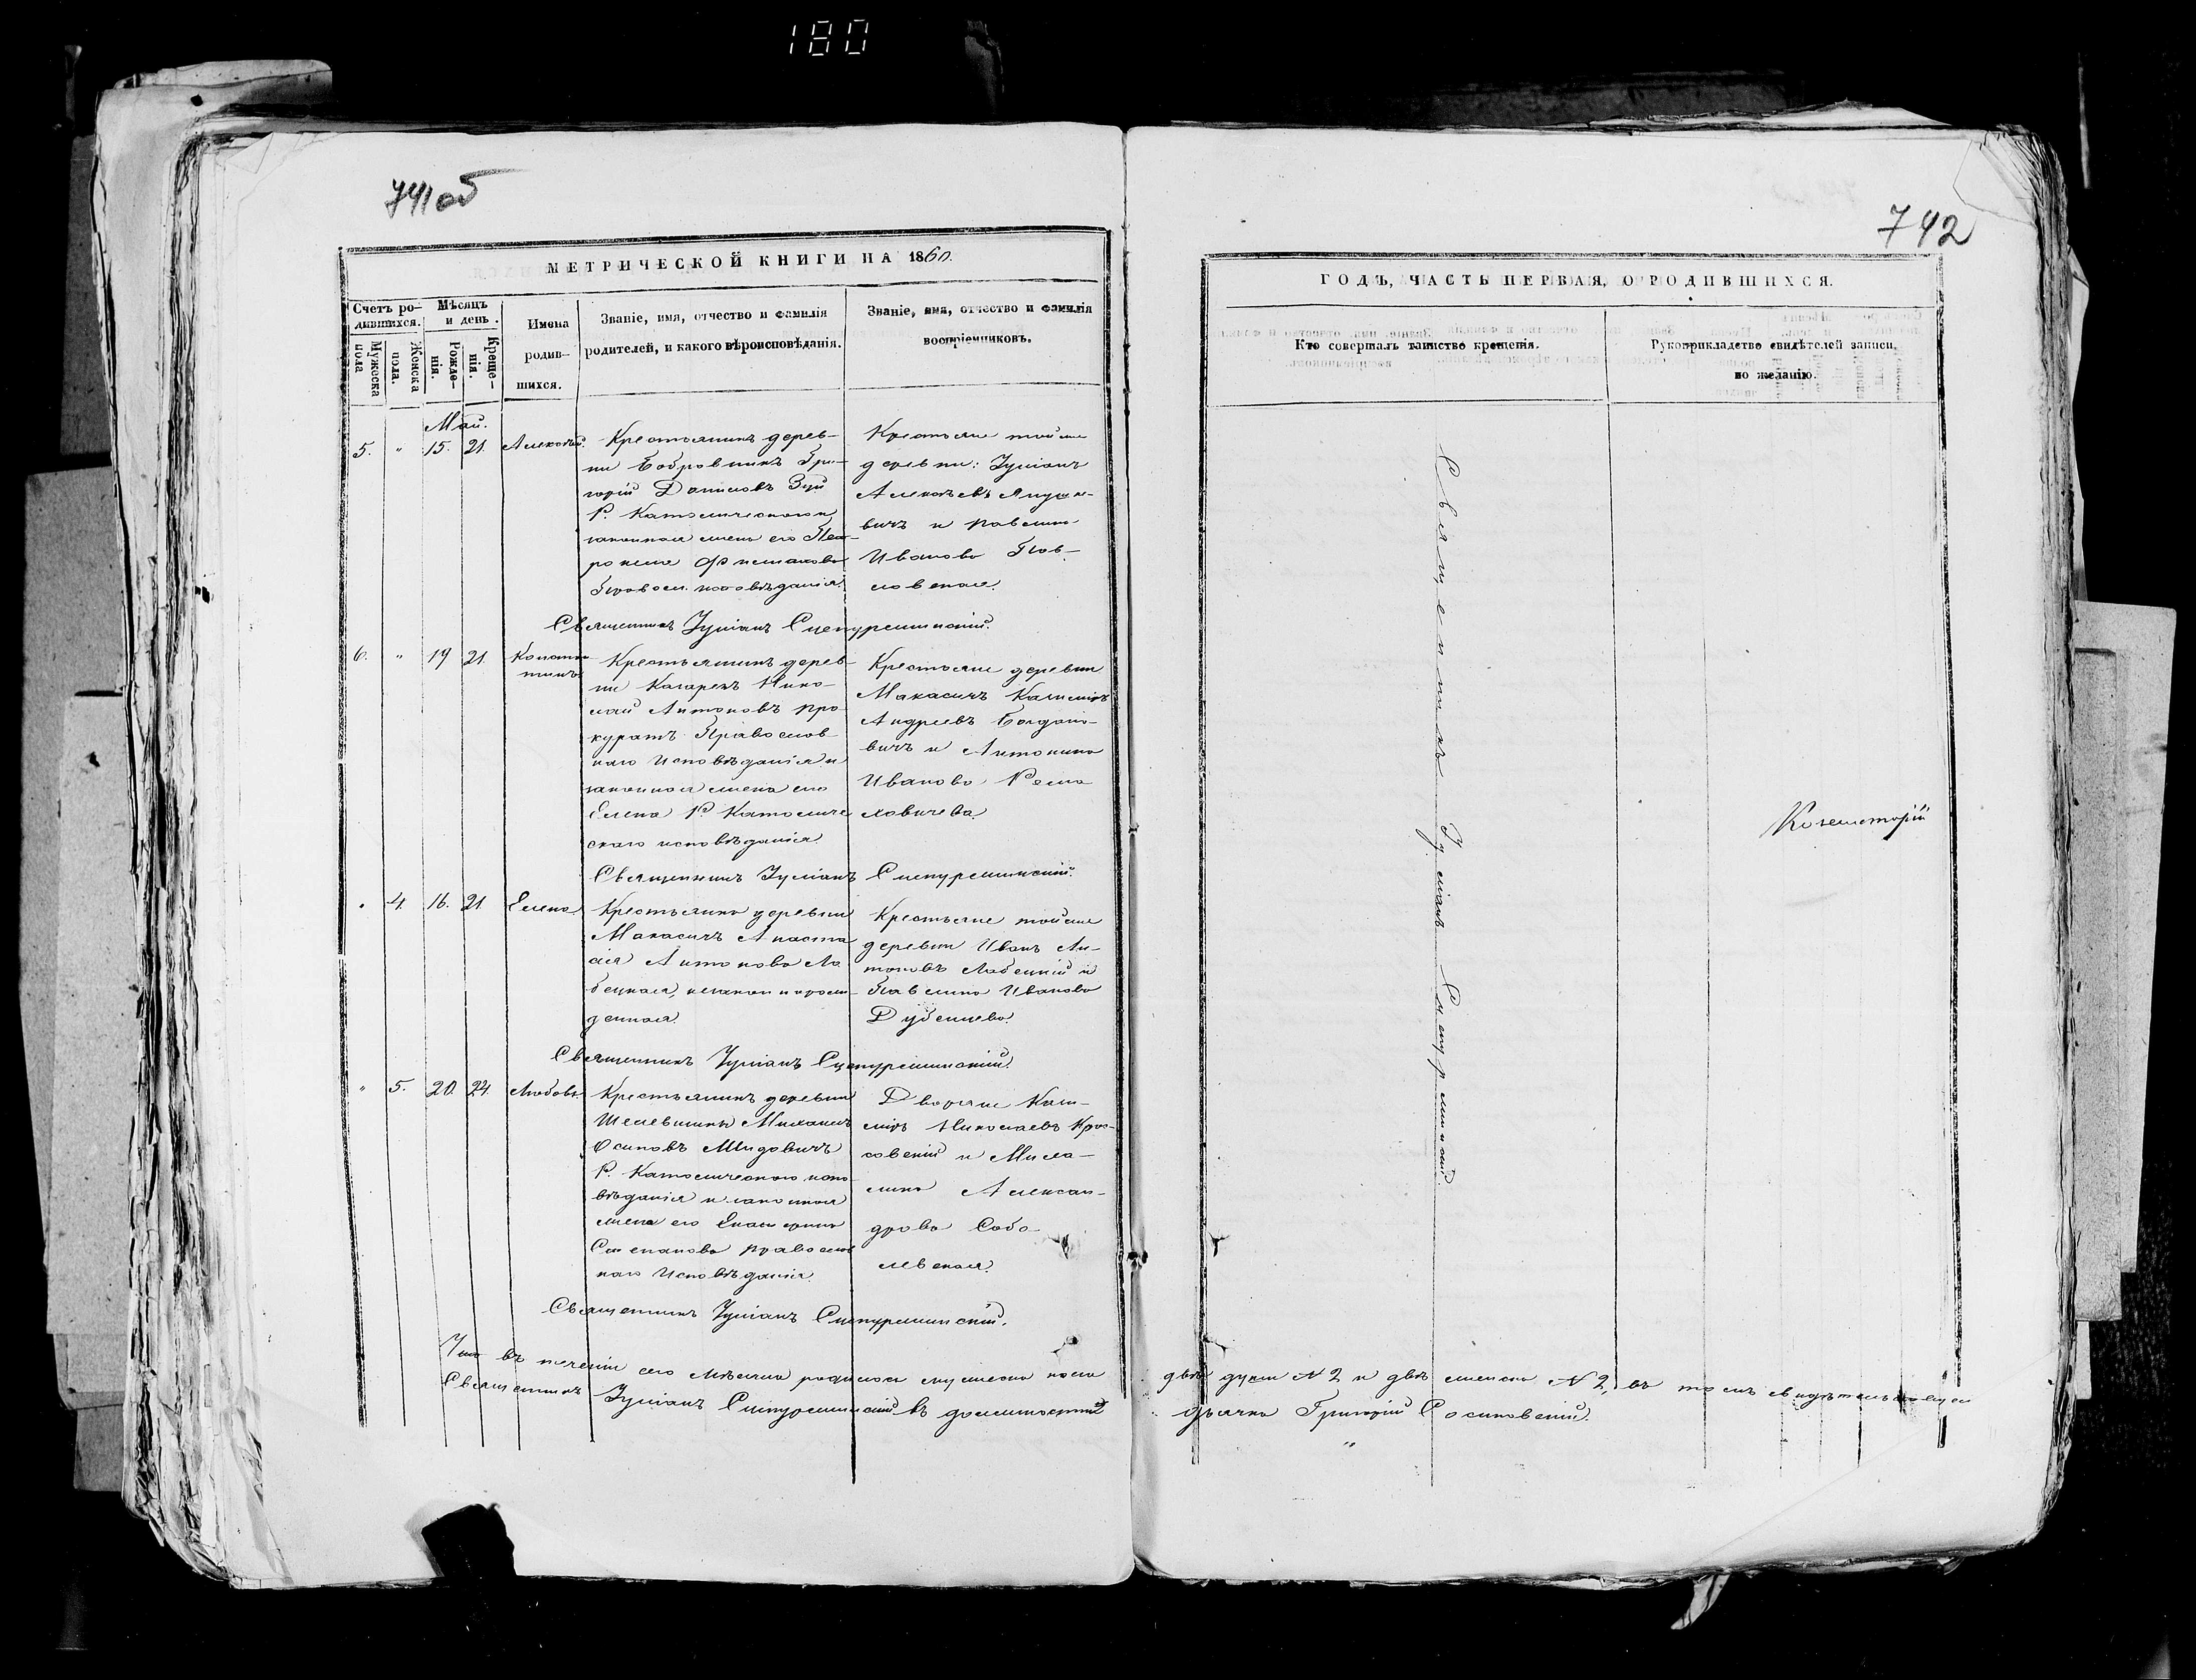 180
741 об
МЕТРИЧЕСКОЙ КНИГИ НА 1860.
Счетъ ро-
дившихся.
Мужеска
пола
Женска
пола.
Мѣсяцъ
и день.
Рожде-
нія.
Креще-
нія.
Имена
родив-
шихся.
Званіе, имя, отчество и фамилія
родителей, и какого вѣроисповѣданія.
Званіе, имя, отчество и фамилія
воспріемниковъ.
Май.
5. " 15. 21. Алексѣй.
Крестьянинъ дерев-
ни Бобровникъ Гри-
горій Даниловъ Зуй
Р. Католическаго и
законная жена его
Правосл. исповѣданія.
Крестьяне тойже
деревни: Іуліанъ
Алексѣевъ Янушке-
вичъ и Павлина
Иванова Пав-
ловская.
Священникъ Іуліанъ
6. " 19 21. Констан
тинъ
Крестьянинъ дерев-
ни Нико-
лай Антоновъ Про
куратъ Православ
наго Исповѣданія и
законная жена его
Елена Р. Католиче
скаго исповѣданія.
Крестьяне деревни
Макасичъ Казиміръ
Андреевъ Богдано-
вичъ и Антонина
Иванова
Священникъ Іуліанъ
" 4. 16. 21 Елена
Крестьянка деревни
Макасичъ Анаста
сія Антонова Ло
бецкая, незаконнорож-
денная.
Крестьяне тойже
деревни Иванъ Ан-
тоновъ Лобецкій и
Павлина Иванова
Священникъ Іуліанъ
" 5. 20. 24. Любовь.
Крестьянинъ деревни
Михаилъ
Осиповъ
Р. Католическаго испо
вѣданія и законная
жена его Екатерина
Степанова Православ
наго Исповѣданія.
Дворяне Кази-
міръ Николаевъ
и
Алексан-
дрова Собо-
левская.
Священникъ Іуліанъ
Что въ теченіи сего мѣсяца родилось мужеска пола
Священникъ Іуліанъ въ должности
742
ГОДЪ, ЧАСТЬ ПЕРВАЯ, О РОДИВШИХСЯ.
Кто совершалъ таинство крещенія.
Рукоприкладство свидѣтелей записи,
по желанію.
Священникъ Іуліанъ
двѣ души N 2 и двѣ женска N 2, въ томъ
дьячка Григорій Сосиновскій.